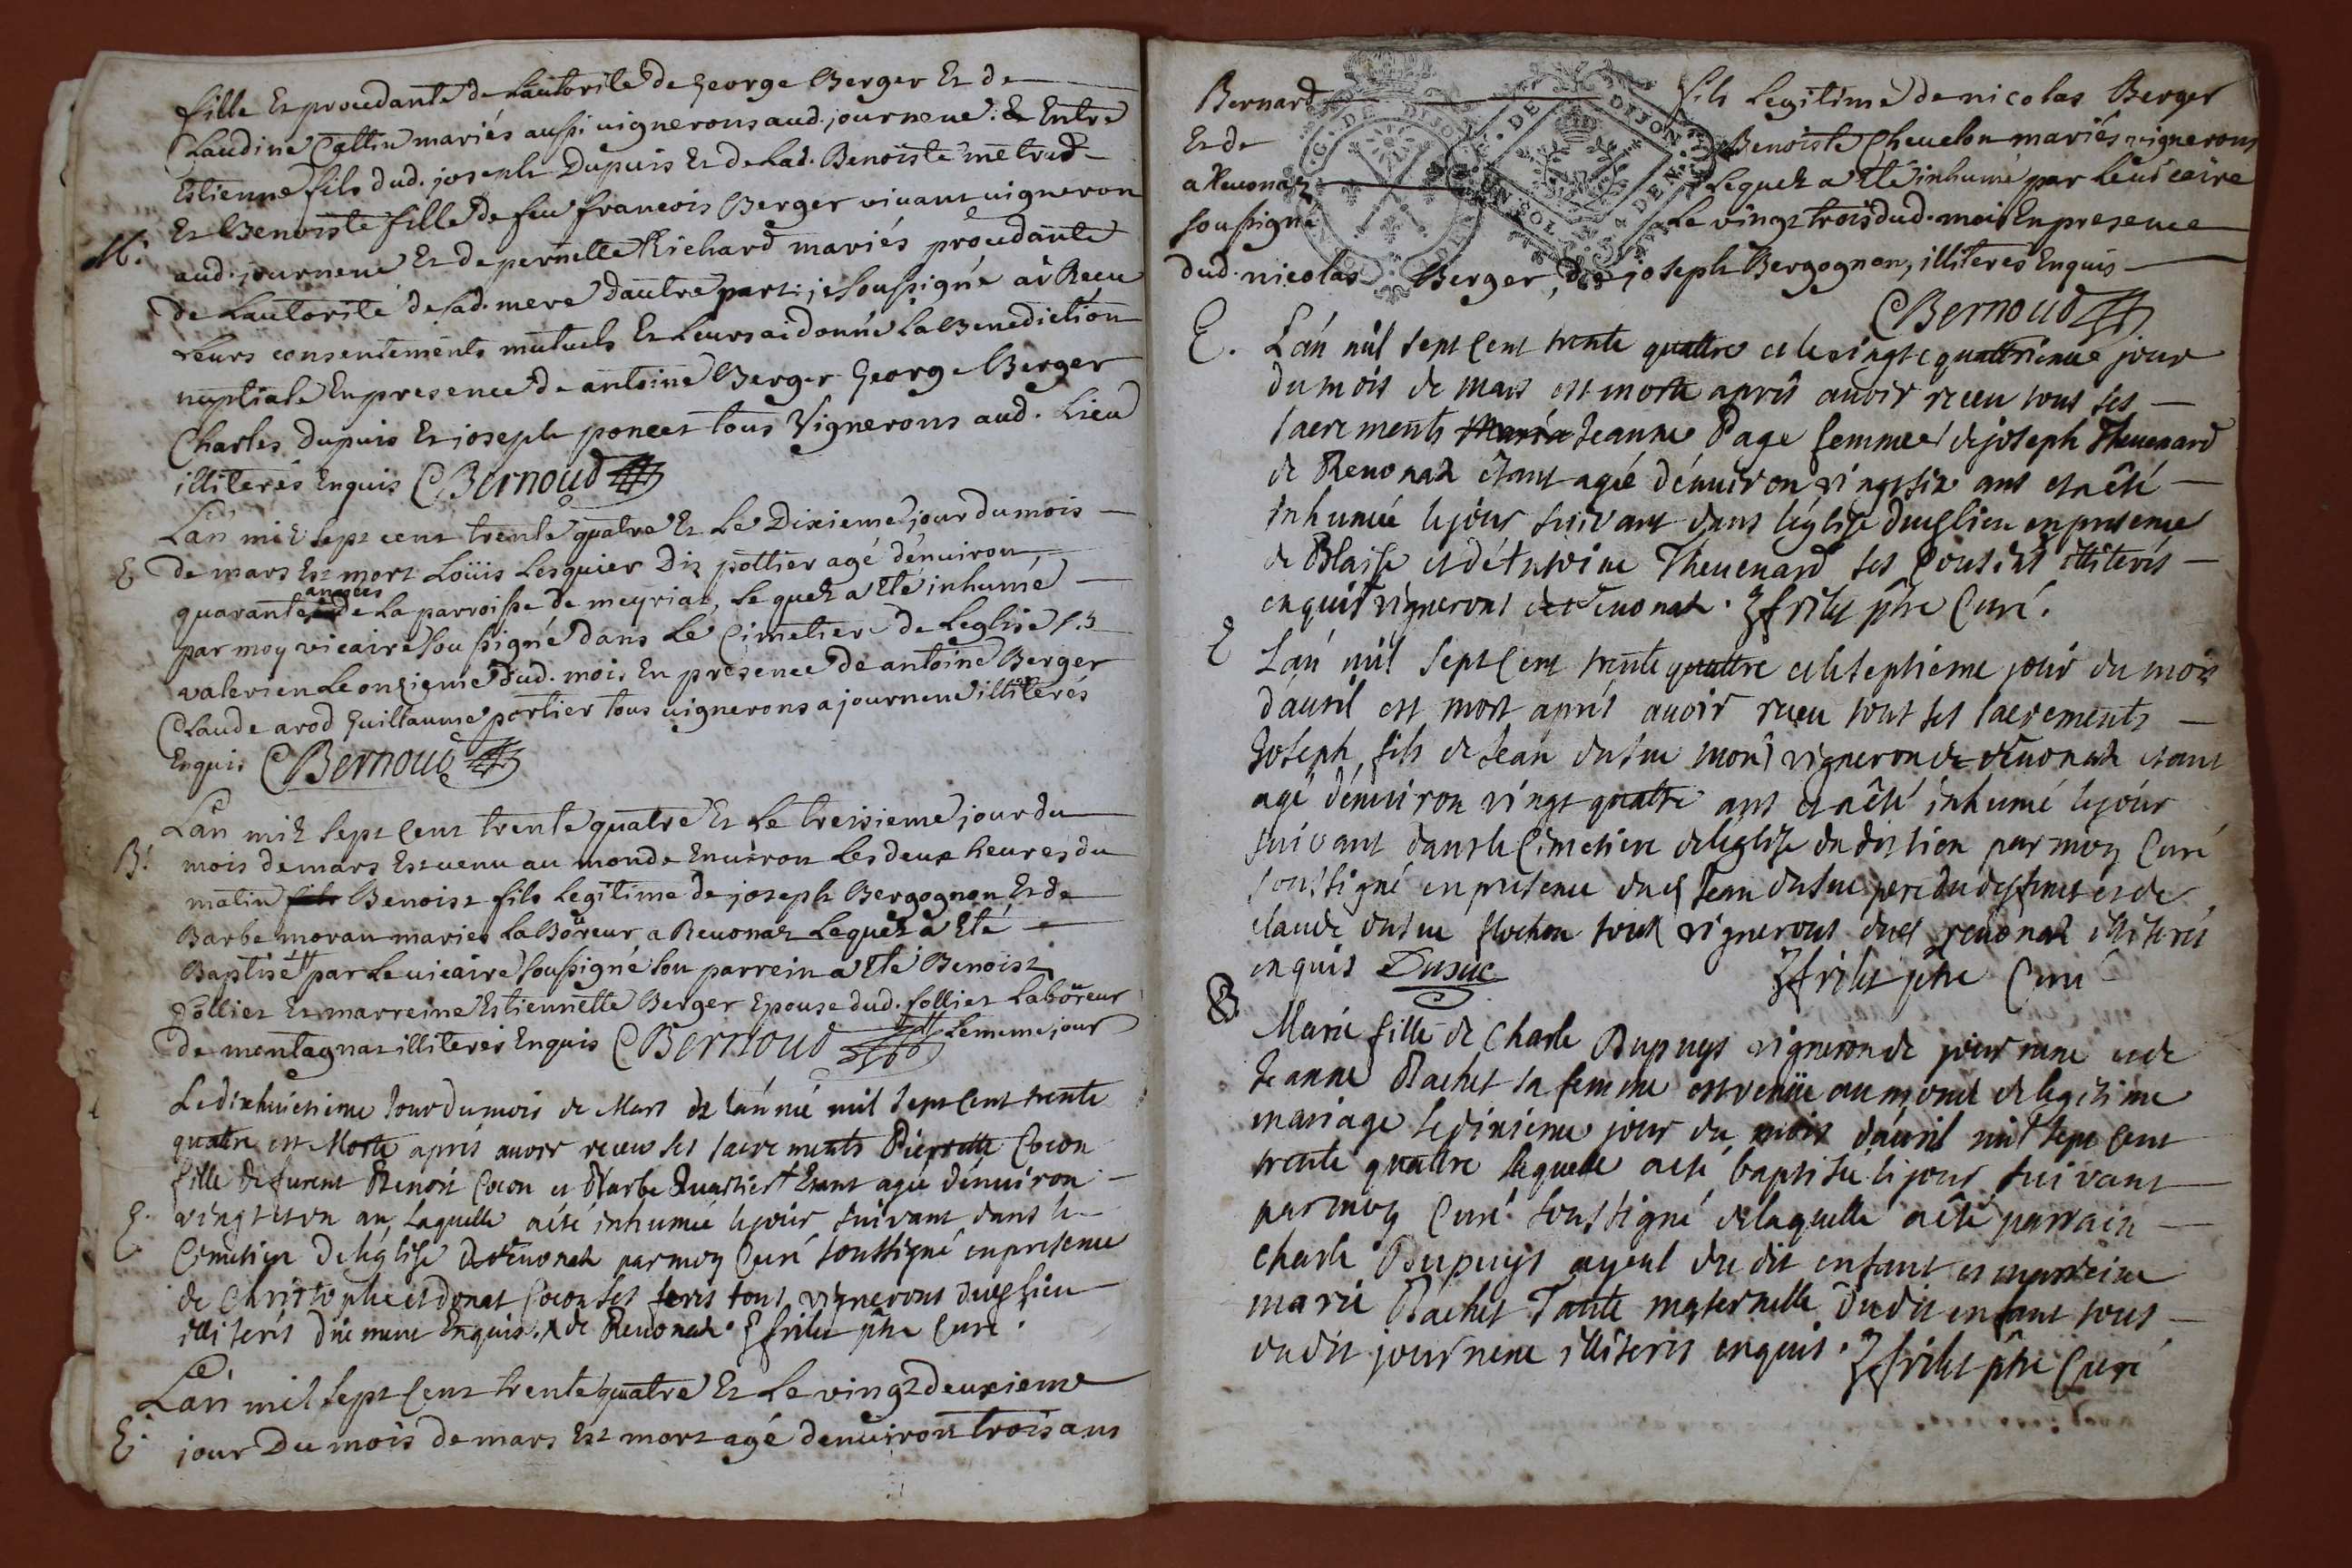 fille Et procedante de Lautorité de George Berger Et de
Claudine Cattin mariés aussi vignerons aud. journene. & Entre
Estienne fils dud. joseph Dupuis Et de Lad. Benoiste metrad
Et Benoiste fille de feu francois Berger vivant vigneron
M.
aud. journene Et de pernette Richard mariés procedante
de Lautorité de Lad. mere dautre part: je soussigné ai Receu
Leurs consentements mutuels Et Leurs ai donné La Benediction
nuptiale En presence de antoine Berger George Berger
Charles Dupuis Et joseph poncet tous Vignerons aud. Lieu
illiterés Enquis CBernoud
Lan mil sept cent trente quatre Et Le Dixieme jour du mois
E
de mars Est mort Loüis Lesquier Dit pottier agé denviron
années
quarante de La parroisse de meyriat, Lequel a Eté inhumé
par moy vicaire soussigné dans Le Cimetiere de Leglise St
valerien Le onzieme dud. mois En presence de antoine Berger
Claude arod Guillaume portier tous vignerons a journene illiterés
Enquis CBernoud
Lan mil sept Cent trente quatre Et Le treisieme jour du
B.
mois de mars Est venu au monde Environ Les deux heures du
matin fils Benoist fils Legitime de joseph Bergognon Et de
Barbe moran mariés Laboureur a Revonaz Lequel a Eté
Baptisé par Le vicaire soussigné son parrein a Eté Benoist
folliet Et marreine Estiennette Berger Epouse dud. follier Laboureur
de montagnat illiterés Enquis CBernoud Le meme jour
Le dixhuitieme Jour du mois de Mars de lánné mil sept Cent trente
quatre est Morte aprés avoir receu ses sacrements Pierrette Cocon
fille de furent Benoit Cocon et Barbe Quartier Etant agée dénviron
E.
vingt et un an, Laquelle a été inhumée le jour suivant dans le
Cimetiere de léglise de Revonah par moy Curé soussigné en presence
de Christophle et donat Cocon ses freres tous vignerons dud lieu
illiterés düement Enquis. de Revonah. frilet ptre Curé.
Lan mil sept Cent trente quatre Et Le vingt deuxieme
E.
jour Du mois de mars Est mort agé denviron trois ans
Bernard fils Legitime de nicolas Berger
Et de Benoiste Chevelon mariés vignerons
a Revonaz Lequel a Eté inhumé par Le vicaire
soussigné Le vingt trois dud. mois En presence
dud. nicolas Berger, de joseph Bergognon, illiterés Enquis
CBernoud
G. DE DIJON
G. DE DIJON
UN SOL
4 DEN
E.
Lán mil sept Cent trente quattre et le vingt e quattriéme jour
du mois de mars est morte aprés avoir receu tous ses
sacrements Maria Jeanne Page femme de joseph Thevenard
de Revonah étant agée dénviron vingt six ans et a été
inhumée le jour suivant dans léglise dud lieu en presence
de Blaise et dé Antoine Thevenard ses Cousins illiterés
enquis vignerons de Revonah. frilet ptre Curé.
E
Lán mil Sept Cent trente quattre et le septiéme jour du mois
dávril est mort aprés avoir receu tous ses sacrements
Joseph, fils de Jean dusuc mond vigneron de Revonah étant
agé dénviron vingt quatre ans et a été inhumé le jour
suivant dans le Cimetiere de léglise du dit lieu par moy Curé
soussigné en presence dud Jean dusuc pere du deffunct et de
claude dusuc flochon tous vignerons dud revonah illiterés
enquis Dusuc frilet ptre Curé
B
Marie fille de Charle Dupuys vigneron de journene et de
Jeanne Rachet sa femme est venüe au monde de legitime
mariage le dixiéme jour du mois dávril mil sept cent
trente quattre laquelle a eté baptisée le jour suivant
par moy Curé soussigné de laquelle a été parrain
charle Dupuys ayeul du dit enfant et marreine
marie Rachet Tante maternelle du dit enfant tous
du dit journene illiterés enquis. frilet ptre Curé